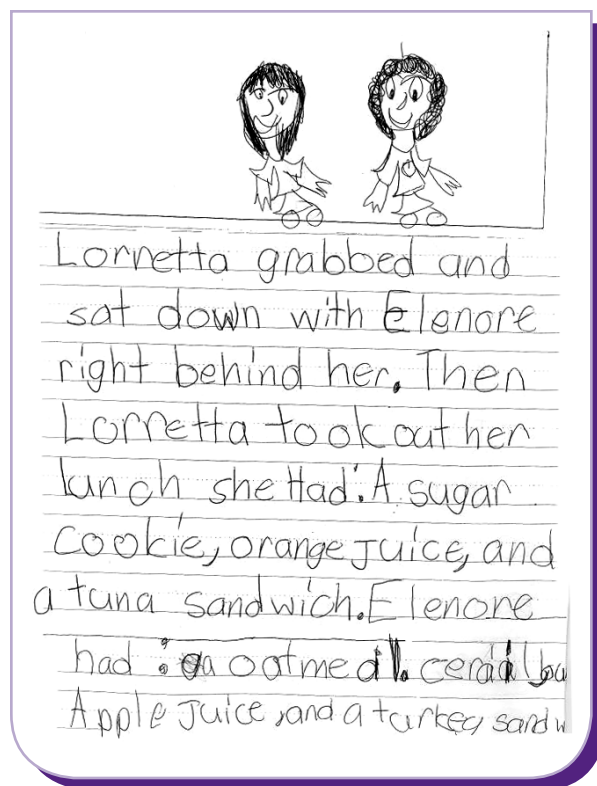 Lornetta grabbed and
sat down with Elenore
right behind her. Then
Lorretta took out her
lunch she Had: A sugar
cookie, orange Juice, and
a tuna sandwich. Elenore
had : a ootmeal cerail
Apple Juice, and a turkey